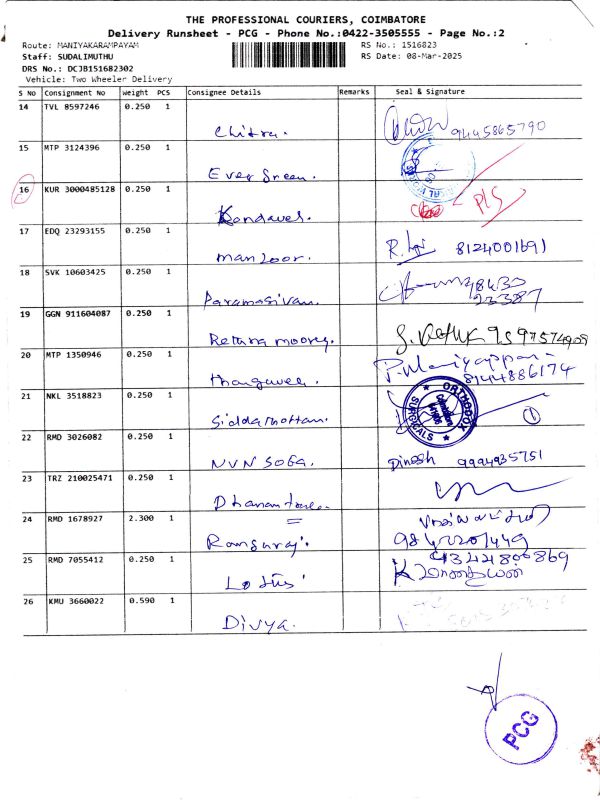 THE PROFESSIONAL COURIERS, COIMBATORE
Delivery Runsheet - PCG - Phone No.:0422-3505555 - Page No.:2
Route: MANIYAKARAMPAYAM RS No.: 1516823
Staff: SUDALIMUTHU RS Date: 08-Mar-2025
DRS No.: DCJB151682302
Vehicle: Two Wheeler Delivery
S No Consignment No Weight PCS Consignee Details Remarks Seal & Signature
14 TVL 8597246 0.250 1
Chitra. 9445865790
15 MTP 3124396 0.250 1
Ever Green.
16 KUR 3000485128 0.250 1
Kondavel. PLS
17 EDQ 23293155 0.250 1
manzoor. 8124001691
18 SVK 10603425 0.250 1
Paramasivam.
19 GGN 911604087 0.250 1
20 MTP 1350946 0.250 1
P. Maniyappan
8144886174
21 NKL 3518823 0.250 1
ORTHOCOX
SURGICALS
22 RMD 3026082 0.250 1
NVN SOFA. Dinesh 9994935751
23 TRZ 210025471 0.250 1
24 RMD 1678927 2.300 1
Rangaraj. 9842201449
25 RMD 7055412 0.250 1
Lotus 9344800869
26 KMU 3660022 0.590 1
Divya.
PCG